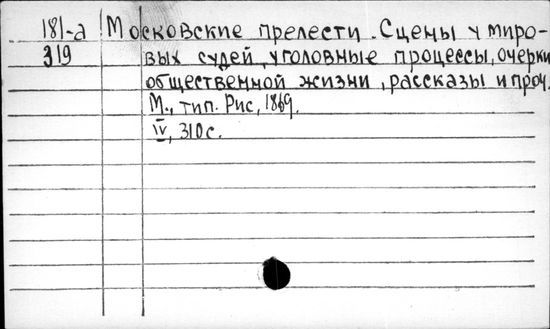 181-а Московские прелести. Сцены у миро-
319 вых судей, уголовные процессы, очерки
общественной жизни, рассказы и проч.
М., тип. Рис, 1869.
IV, 310 с.